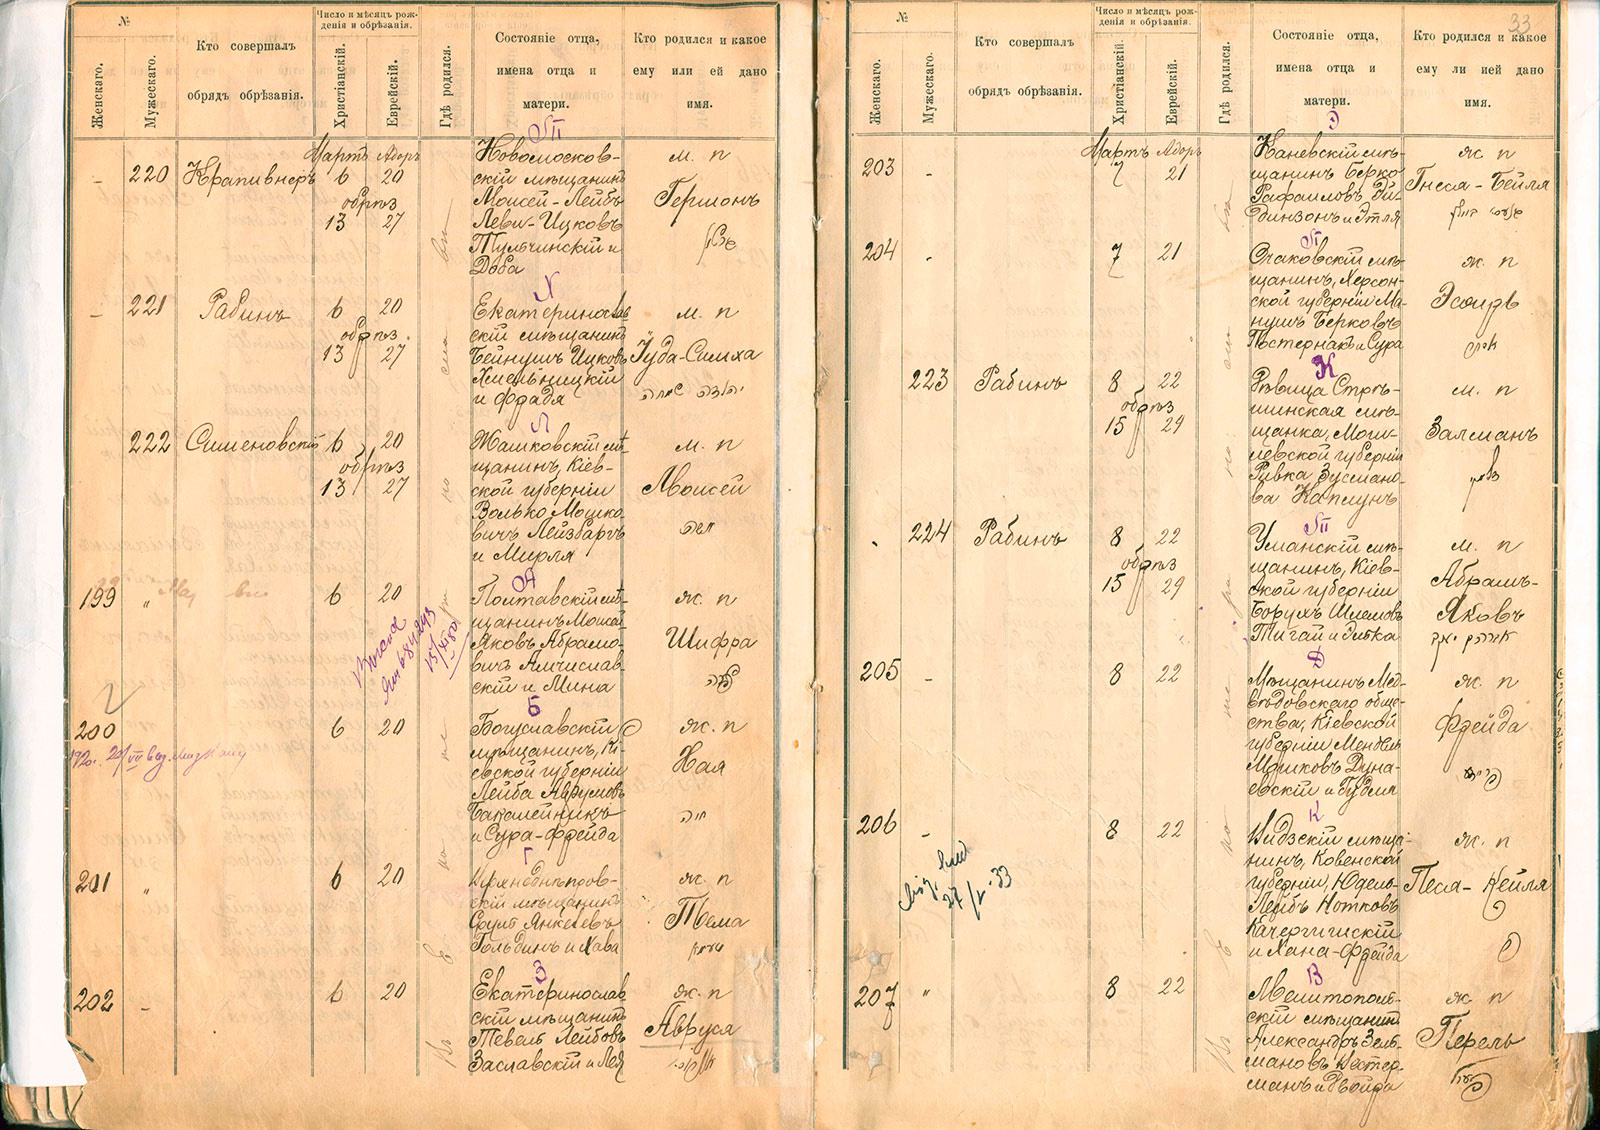 №
Женскаго.
Мужескаго.
Кто совершалъ
обрядъ обрѣзанія.
Число и мѣсяцъ рож-
денія и обрѣзанія.
Христіанскій.
Еврейскій.
Гдѣ родился.
Состояніе отца,
имена отца и
матери.
Кто родился и какое
ему или ей дано
имя.
- 220 Крапивнеръ
Мартъ Адоръ
6 20
обрѣз
13 27
Новомосков-
скій мѣщанинъ
Моисей-Лейбъ
Леви-Ицковъ
Тульчинскій и
Доба
м. п
Германъ
- 221 Рабинъ
6 20
обрѣз
13 27
Екатеринослав-
скій мѣщанинъ
Бейнушъ Ицковъ
Хмельницкій
и Фрадя
м. п
Іуда-Симха
יהודה שמחה
222 Сименовскій
6 20
обрѣз
13 27
Жашковскій мѣ-
щанинъ, Кіев-
ской губерніи
Волько Мошко-
вичъ Лейзбаргъ
и Мирля
м. п
Моисей
משה
199 "
6 20
Полтавскій мѣ-
щанинъ
Яковъ Абрамо-
вичъ Амчислав-
скій и Мина
ж. п
Шифра
שפרה
200
6 20
Богуславскій
мѣщанинъ, Кі-
евской губерніи
Лейба Аврумовъ
Бакалейникъ
и Сура-Фрейда
ж. п
Хая
חיה
201 "
6 20
Верхнеднѣпров-
скій мѣщанинъ
Янкелевъ
Гольдинъ и Хава
ж. п
Тема
202 -
6 20
Екатеринослав
скій мѣщанинъ
Тевель Лейбовъ
Заславскій и Лея
ж. п
Авруся
33
№
Женскаго.
Мужескаго.
Кто совершалъ
обрядъ обрѣзанія.
Число и мѣсяцъ рож-
денія и обрѣзанія.
Христіанскій.
Еврейскій.
Гдѣ родился.
Состояніе отца,
имена отца и
матери.
Кто родился и какое
ему ли ией дано
имя.
203 -
Мартъ Адоръ
7 21
Каневскій мѣ-
щанинъ Берко
Рафаиловъ Эй-
динзонъ и Этля
ж. п
Гнеся-Бейля
204 -
7 21
Очаковскій мѣ-
щанинъ, Херсон-
ской губерніи Ма-
нушъ Берковъ
Постернакъ и Сура
ж. п
Эсѳирь
אסתר
223 Рабинъ
8 22
обрѣз
15 29
Дѣвица Стрѣ-
шинская мѣ-
щанка, Моги-
левской губерніи
Ривка Зусмано-
ва Каплунъ
м. п
Залманъ
זלמן
224 Рабинъ
8 22
обрѣз
15 29
Уманскій мѣ-
щанинъ, Кіев-
ской губерніи
Борухъ Шлемовъ
Пигай и Гитка
м. п
Абрамъ-
Яковъ
אברהם יעקב
205 -
8 22
Мѣщанинъ Мед-
вѣдовскаго обще-
ства, Кіевской
губерніи Мендель
Мошковъ Дуна-
евскій и Гудля
ж. п
Фрейда
פריידא
206 -
8 22
Видзскій мѣща-
нинъ, Ковенской
губерніи, Юдель-
Лейбъ Нотковъ
Качергишскій
и Хана-Фрейда
ж. п
Песя-Кейля
207 "
8 22
Мелитополь-
скій мѣщанинъ
Александръ Зель-
мановъ Вестер-
манъ и Двойра
ж. п
Перель
פערל